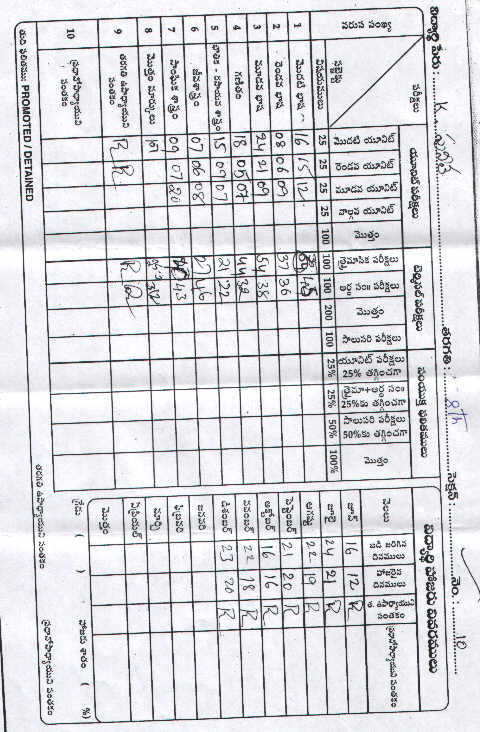 విద్యార్థి పేరు : K. తరగతి : 8th సెక్షన్ : నెం. : 10
వరుస సంఖ్య పరీక్షలు యూనిట్ పరీక్షలు టెర్మినల్ పరీక్షలు సంయుక్త ఫలితములు
పాఠ్య విషయములు మొదటి యూనిట్ రెండవ యూనిట్ మూడవ యూనిట్ నాల్గవ యూనిట్ మొత్తం త్రైమాసిక పరీక్షలు అర్థ సం॥ పరీక్షలు మొత్తం సాలుసరి పరీక్షలు యూనిట్ పరీక్షలు 25% తగ్గించగా త్రైమా+అర్థ సం॥ 25%కు తగ్గించగా సాలుసరి పరీక్షలు 50%కు తగ్గించగా మొత్తం
25 25 25 25 100 100 100 200 100 25% 25% 50% 100%
1 మొదటి భాష 16 15 12 45
2 రెండవ భాష 08 06 09 37 36
3 మూడవ భాష 24 21 09 54 38
4 గణితం 18 05 07 44 32
5 భౌతిక - రసాయన శాస్త్రం 15 09 07 21 22
6 జీవశాస్త్రం 07 06 08 27 46
7 సాంఘిక శాస్త్రం 09 07 20 43
8 మొత్తం మార్కులు
9 తరగతి ఉపాధ్యాయుని సంతకం R R R R
10 ప్రధానోపాధ్యాయుని సంతకం
తుది ఫలితము: PROMOTED / DETAINED తరగతి ఉపాధ్యాయుని సంతకం
విద్యార్థి హాజరు వివరములు
నెలలు బడి జరిగిన దినములు హాజరైన దినములు త. ఉపాధ్యాయుని సంతకం ప్రధానోపాధ్యాయుని సంతకం
జూన్ 16 12 R
జూలై 24 21 R
ఆగస్టు 22 19 R
సెప్టెంబర్ 21 20 R
అక్టోబర్ 16 16 R
నవంబర్ 22 18 R
డిశంబర్ 23 20 R
జనవరి
ఫిబ్రవరి
మార్చి
ఏప్రియల్
మొత్తము
( ) హాజరు శాతం ( %)
ప్రధానోపాధ్యాయుని సంతకం